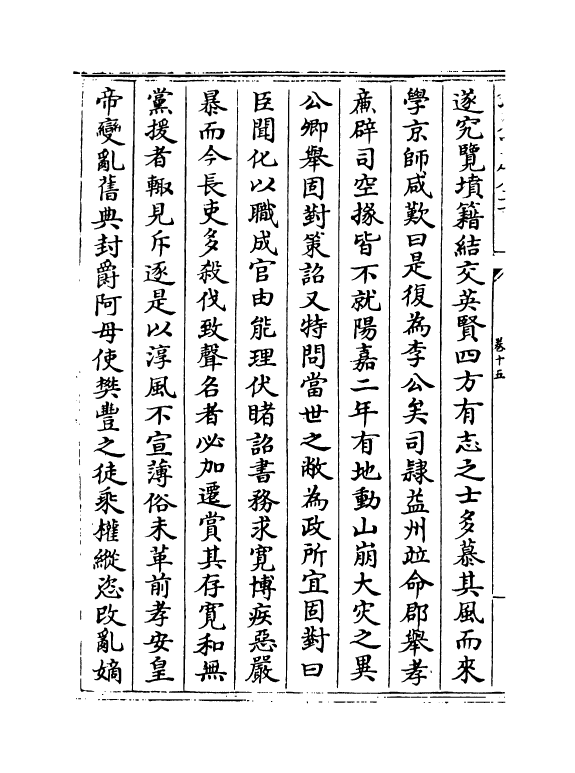 卷十五
遂究覽墳籍結交英賢四方有志之士多慕其風而來
學京師咸歎曰是復為李公矣司隸益州竝命郡舉孝
㢘辟司空掾皆不就陽嘉二年有地動山崩大灾之異
公卿舉固對策詔又特問當世之敝為政所宜固對曰
臣聞化以職成官由能理伏睹詔書務求寛博疾惡嚴
暴而今長吏多殺伐致聲名者必加遷賞其存寛和無
黨援者輙見斥逐是以淳風不宣薄俗未革前孝安皇
帝變亂舊典封爵阿母使樊豐之徒乘權縱恣改亂嫡